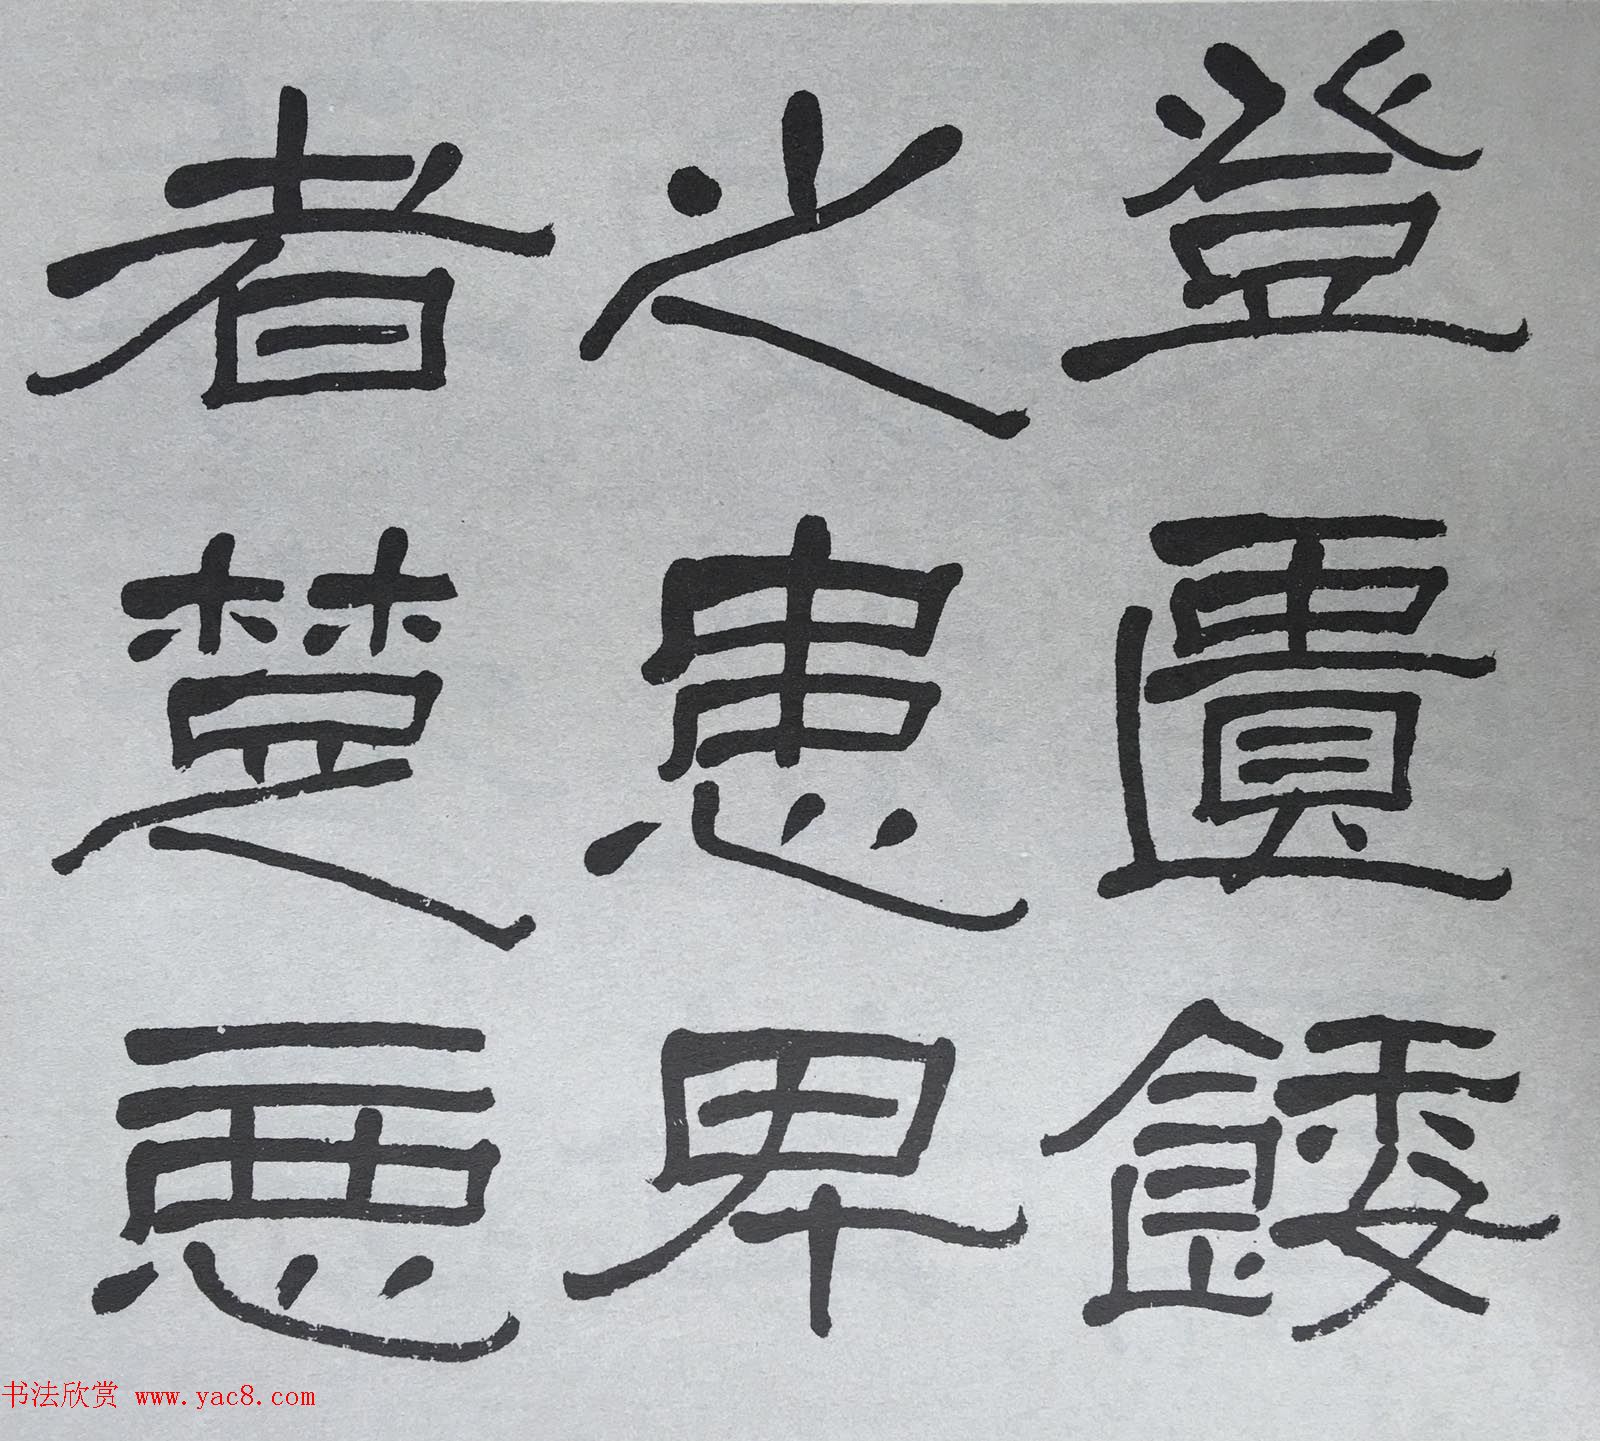 登匱餧
之患卑
者楚惡
书法欣赏 www.yac8.com